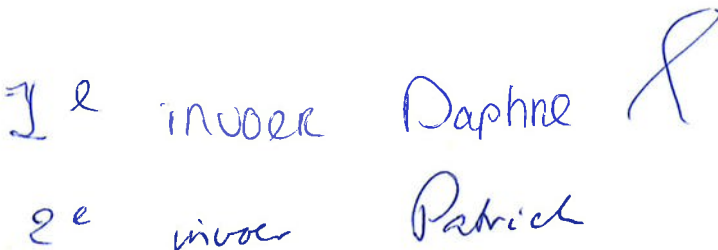 1e invoer Daphne
2e invoer Patrick